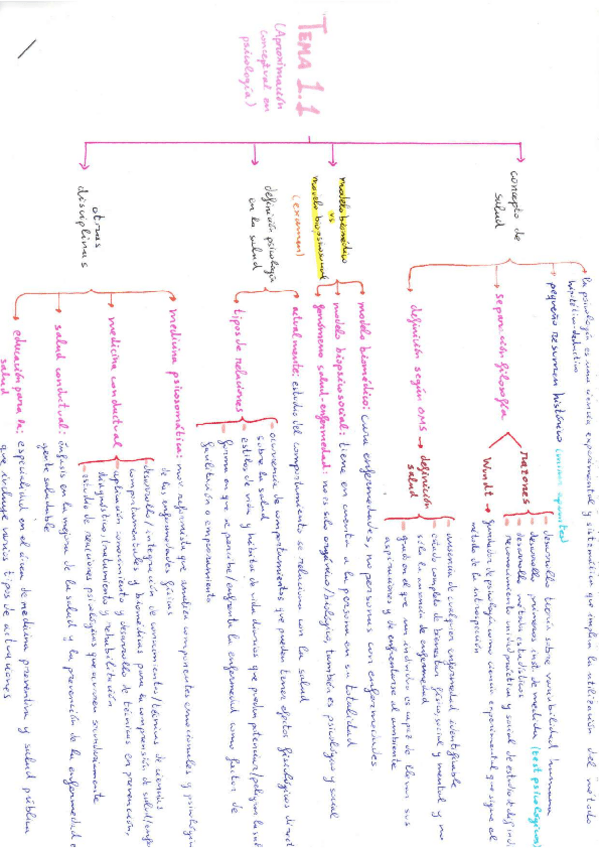 TEMA 1.1
(Aproximación
conceptual en
psicología)
concepto de
salud
la psicología es una ciencia experimental y sistemática que implica la utilización del método
hipotético-deductivo
pequeño resumen histórico (mirar apuntes)
separación filosofía
razones
desarrolla teoría sobre variabilidad humana
desarrolla primeros inst. de medida (test psicológicos)
desarrolla métodos estadísticos
reconocimiento utilidad práctica y social de estudio
Wundt → fundador de psicología como ciencia experimental que sigue el
método de la introspección
definición según OMS → definición
salud
ausencia de cualquier enfermedad identificable
estado completo de bienestar físico, social y mental y no
sólo la ausencia de enfermedad
grado en el que un individuo es capaz de llevar sus
aspiraciones y de enfrentarse al ambiente
modelo biomédico
vs
modelo biopsicosocial
(examen)
modelo biomédico: cura enfermedades, no personas con enfermedades
modelo biopsicosocial: tiene en cuenta a la persona en su totalidad
fenómeno salud-enfermedad: no es solo orgánico/biológico, también es psicológico y social
definición psicología
en la salud
actualmente: estudio del comportamiento se relaciona con la salud
tipos de relaciones
ocurrencia de comportamientos que pueden tener efectos fisiológicos direct
sobre la salud
estilos de vida y hábitos de vida diarios que puedan potenciar/peligrar la sal
forma en que se percibe/enfrenta la enfermedad como factor de
facilitación o empeoramiento
otras
disciplinas
medicina psicosomática: mov. reformista que analiza componentes emocionales y psicológic
de las enfermedades físicas
medicina conductual
desarrollo/integración de conocimientos/técnicas de ciencias
comportamentales y biomédicas para la comprensión de salud/enfer
aplicación conocimiento y desarrollo de técnicas en prevención,
diagnóstico, tratamiento y rehabilitación
estudio de reacciones psicológicas que ocurren secundariamente
salud conductual: énfasis en la mejora de la salud y la prevención de la enfermedad e
gente saludable
educación para la
salud
: especialidad en el área de medicina preventiva y salud pública
que incluye varios tipos de actuaciones